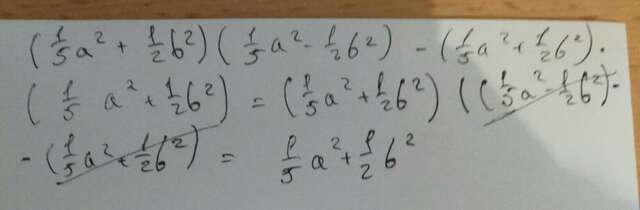 (1/5 a² + 1/2 b²)(1/5 a² - 1/2 b²) - (1/5 a² + 1/2 b²).
(1/5 a² + 1/2 b²) = (1/5 a² + 1/2 b²)((1/5 a² - 1/2 b²) -
- (1/5 a² + 1/2 b²) = 1/5 a² + 1/2 b²